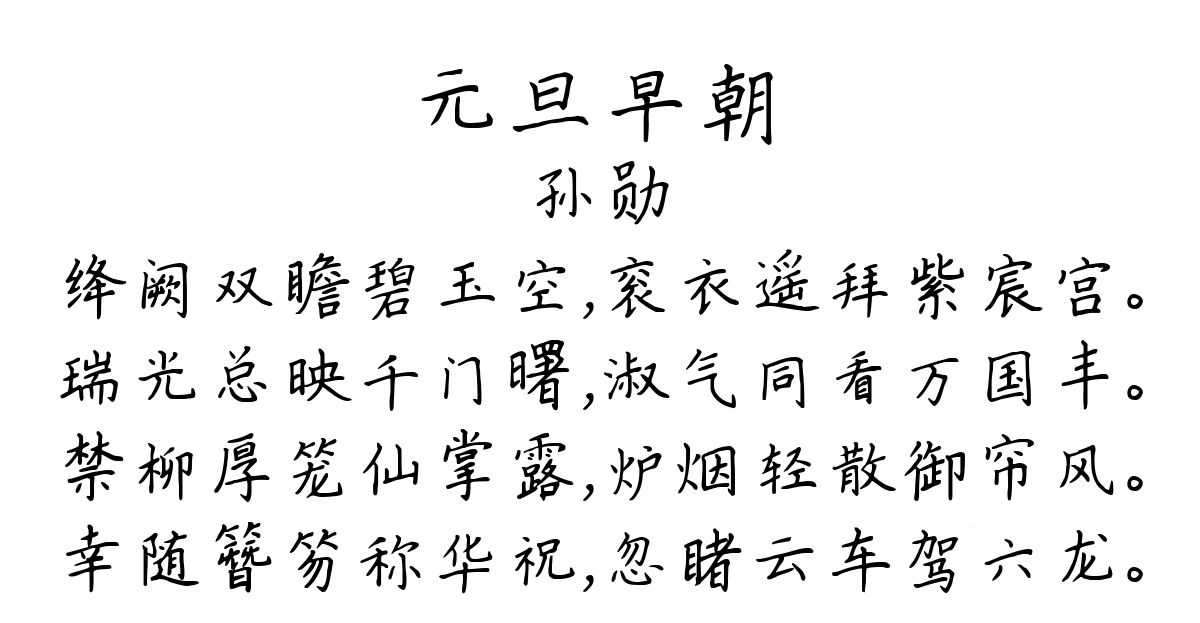 元旦早朝
孙勋
绛阙双瞻碧玉空,衮衣遥拜紫宸宫。
瑞光总映千门曙,淑气同看万国丰。
禁柳厚笼仙掌露,炉烟轻散御帘风。
幸随簪笏称华祝,忽睹云车驾六龙。